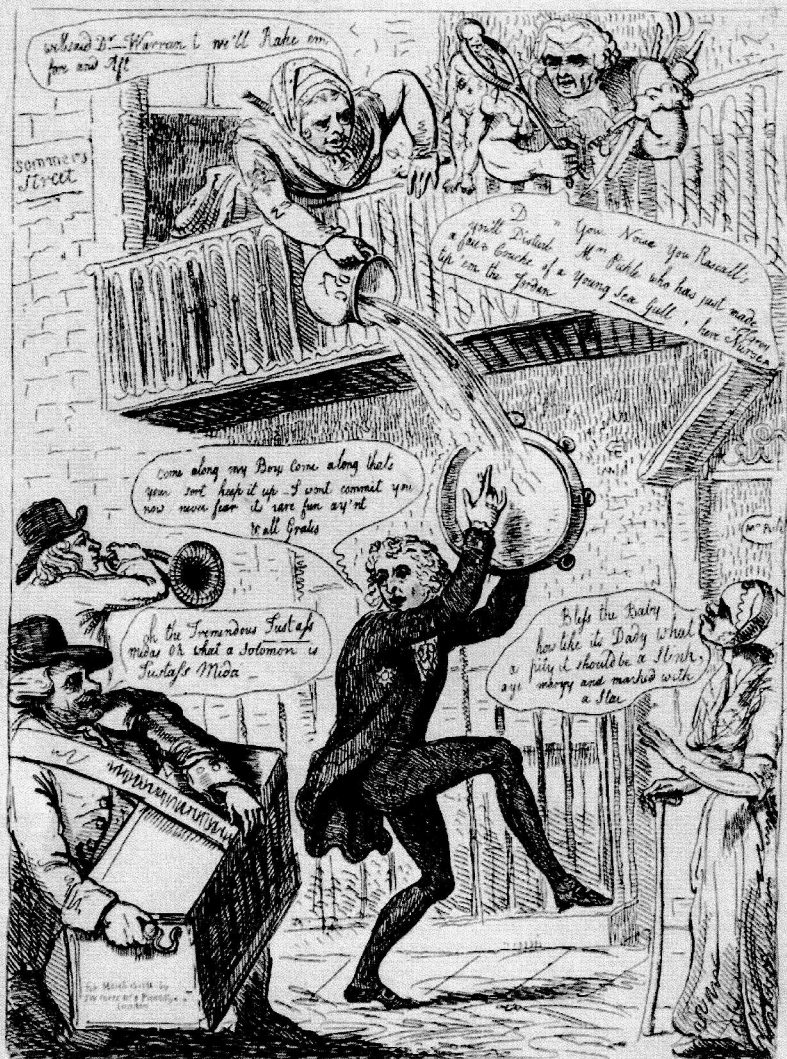 well said Dr. Warran t we'll Rake em
fore and Aft
Sommers
Street
D " Your Noise You Rascall's
you'll Disturb Mrs who has just made
a faux Couche of a Young Sea Gull, here Nurse
tip 'em the Jordan
come along my Boys Come along that's
your sort keep it up I wont commit you
now never fear its rare fun ay'nt
it all Grates
oh the Tremendous Justass
midas Oh what a Solomon is
Justass Mida
Bless the Baby
how like its Dady what
a pity it should be a
aye marry and marked with
a Star
Mrs
London